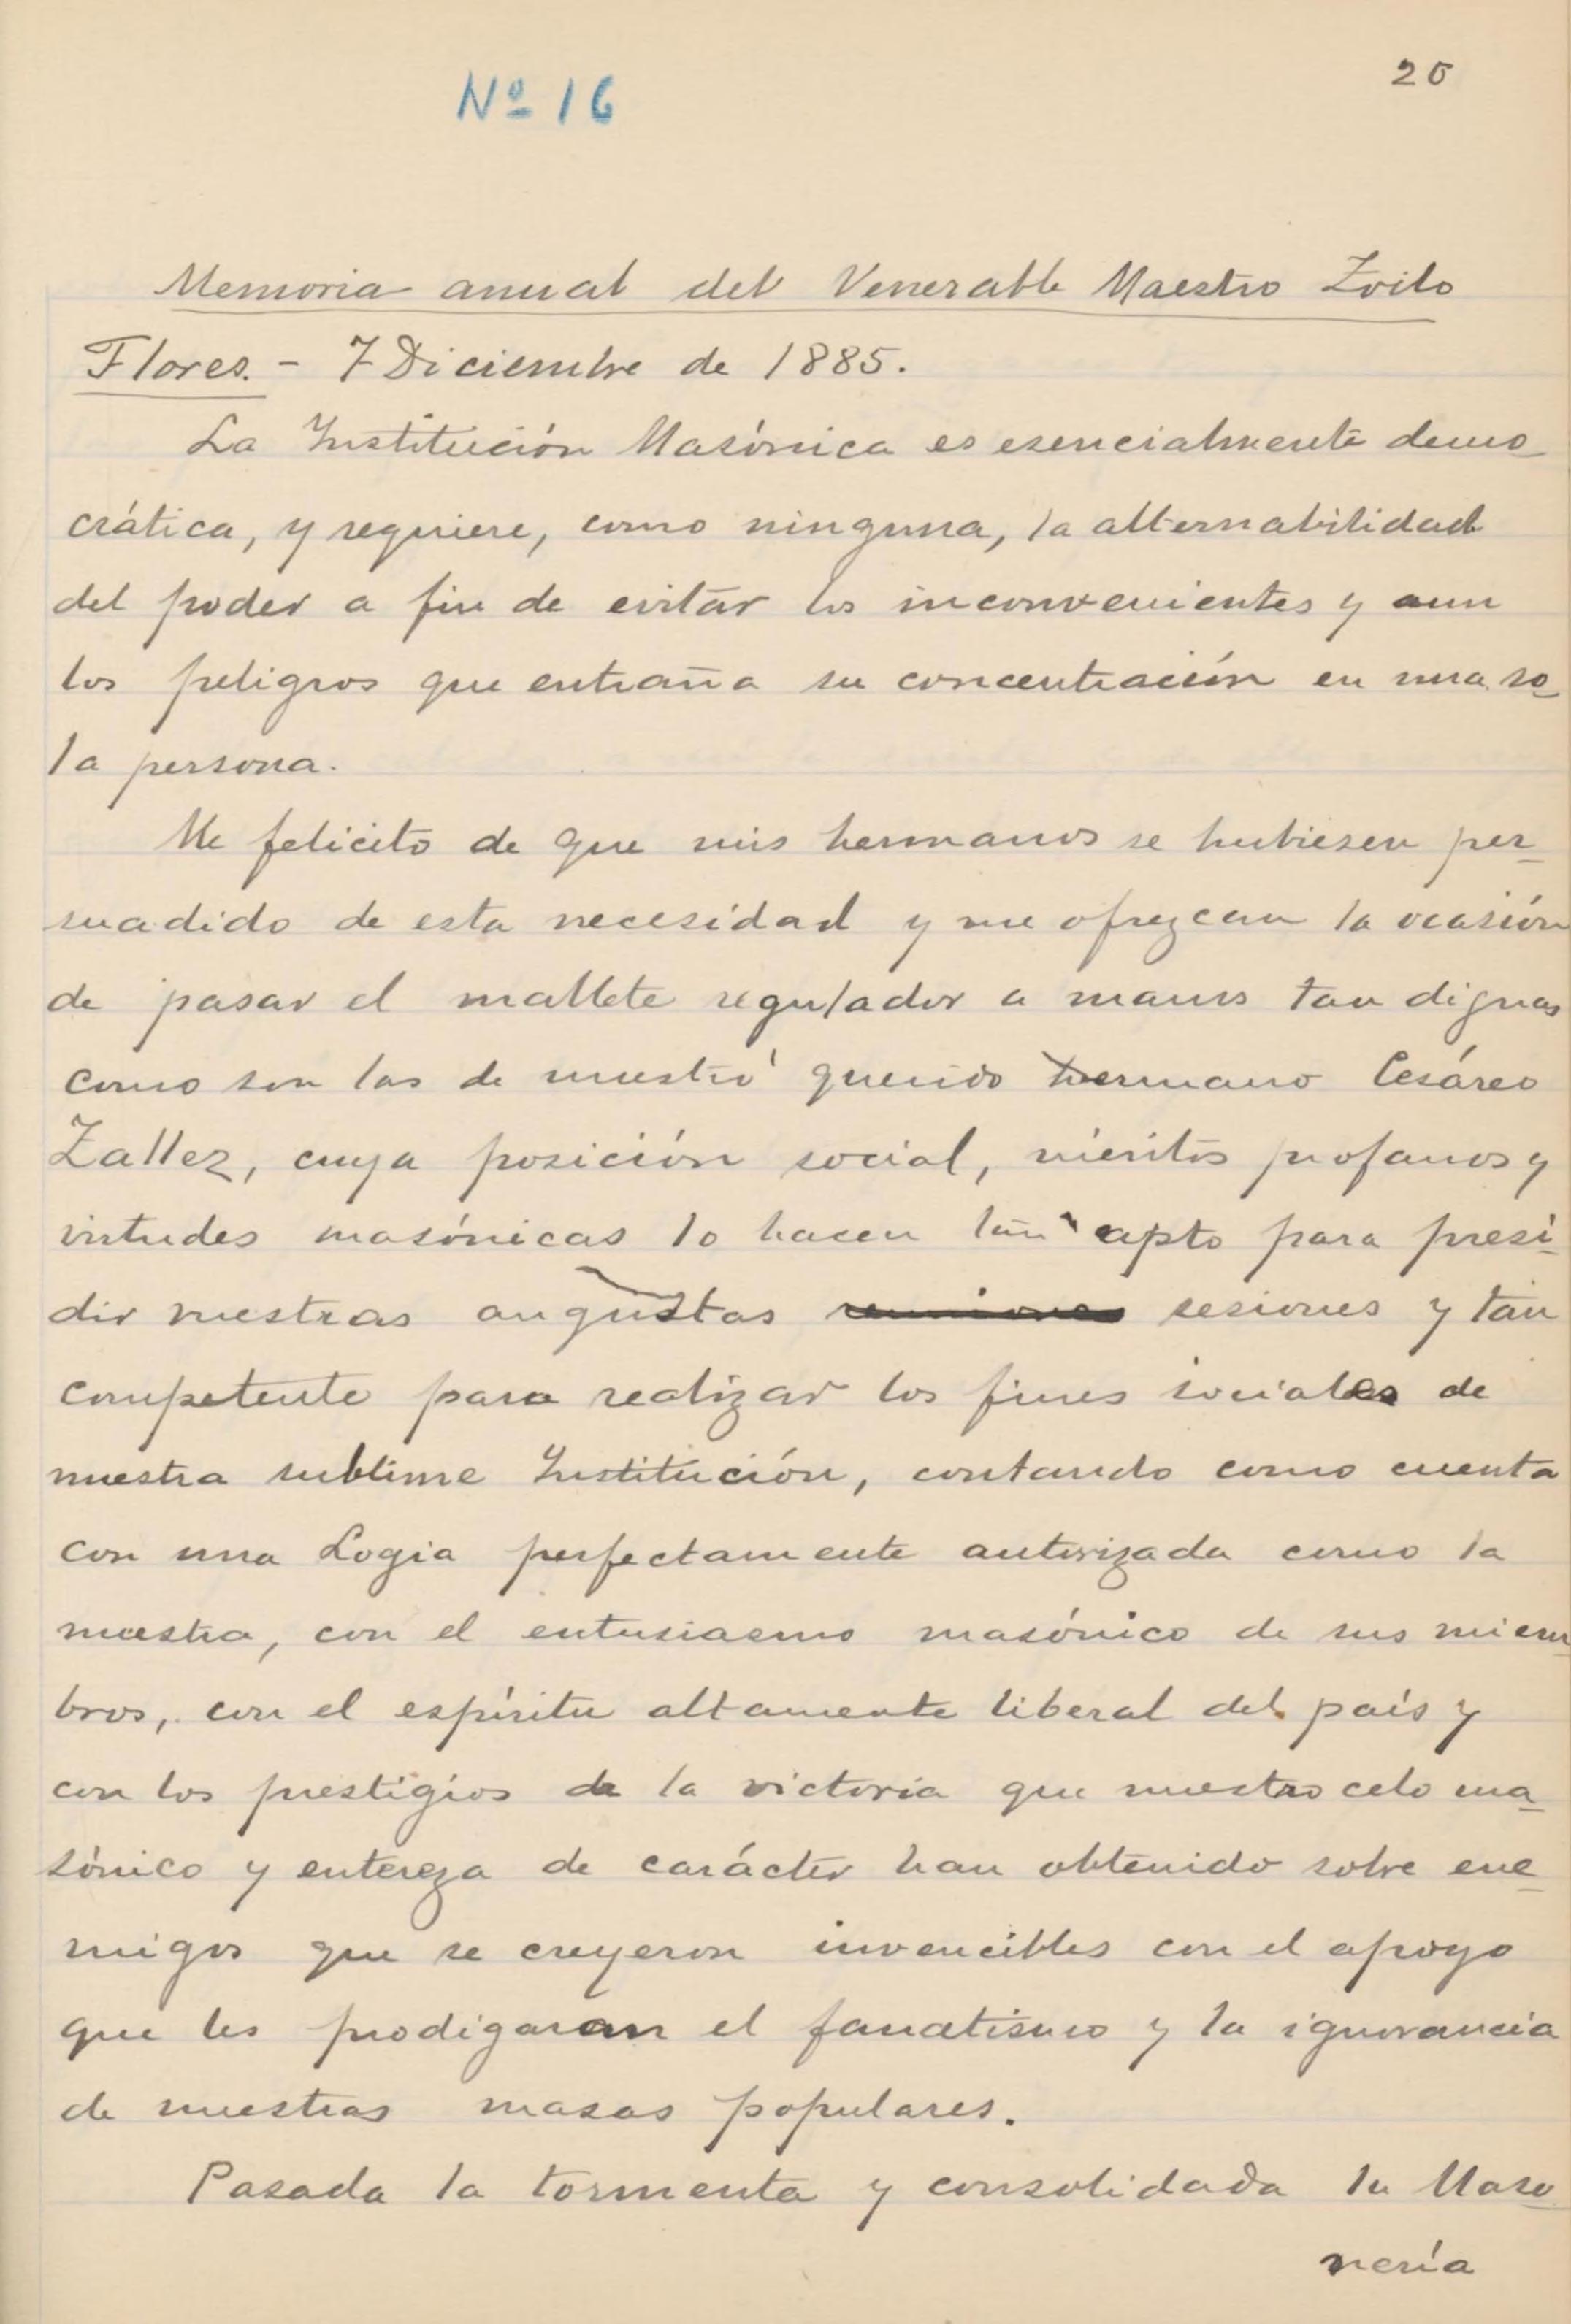 Nº 16
20
Memoria anual del Venerable Maestro Zoilo
Flores. - 7 Diciembre de 1885.
La Institución Masónica es esencialmente demo
crática, y requiere, como ninguna, la alternabilidad
del poder a fin de evitar los inconvenientes y aun
los peligros que entraña su concentración en una so
la persona.
Me felicito de que mis hermanos se hubiesen per
suadido de esta necesidad y me ofrezcan la ocasión
de pasar el mallete regulador a manos tan dignas
como son las de nuestro querido hermano Cesáreo
Zallez, cuya posición social, méritos profanos y
virtudes masónicas lo hacen tan apto para presi
dir nuestras augustas reuniones sesiones y tan
competente para realizar los fines sociales de
nuestra sublime Institución, contando como cuenta
con una Logia perfectamente autorizada como la
nuestra, con el entusiasmo masónico de sus miem
bros, con el espíritu altamente liberal del país y
con los prestigios de la victoria que nuestro celo ma
sónico y entereza de carácter han obtenido sobre ene
migos que se creyeron invencibles con el apoyo
que les prodigaran el fanatismo y la ignorancia
de nuestras masas populares.
Pasada la tormenta y consolidada la Maso
nería